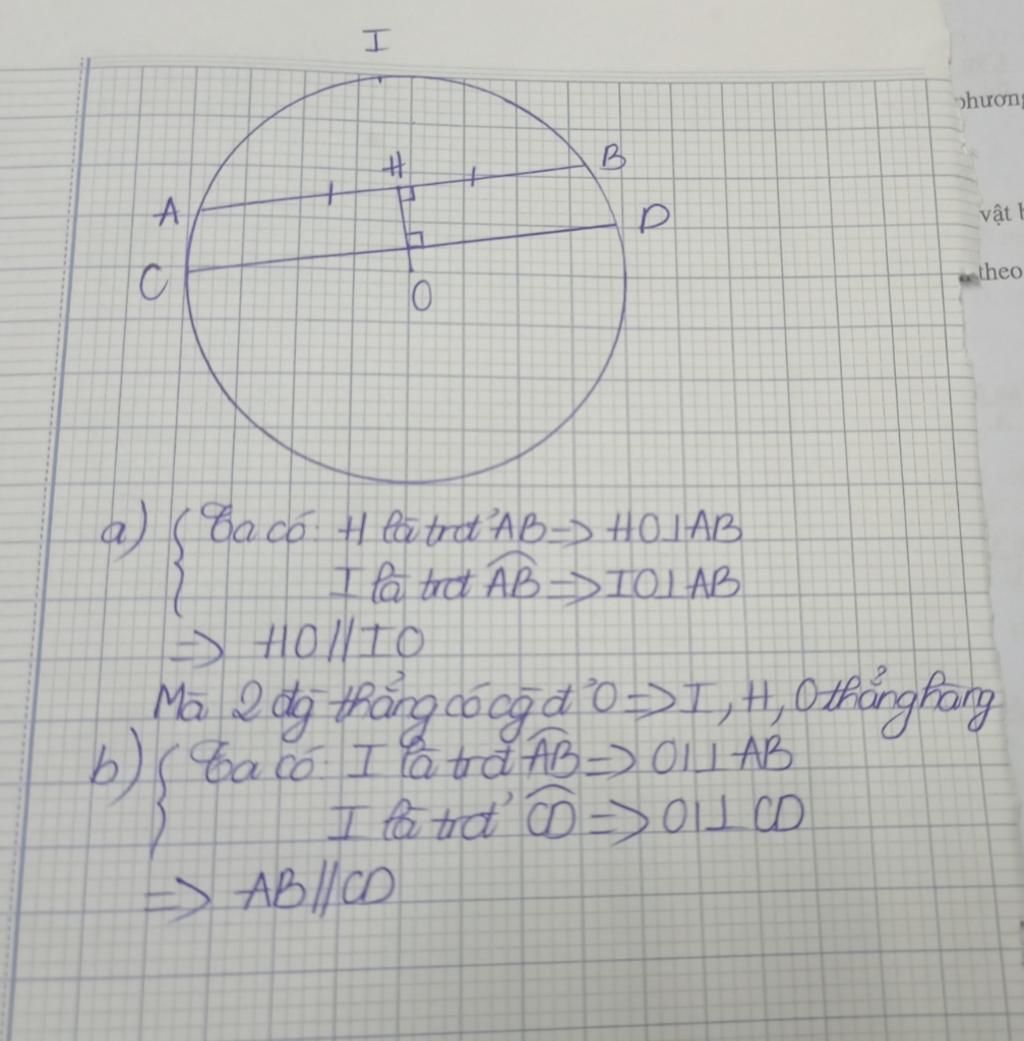 I
phương
H
B
A
D
vật b
C
theo
O
a) { Ta có: H là trđ' AB => HO⊥AB
I là trđ AB⌢ => IO⊥AB
=> HO//IO
Mà 2 đg thẳng có cg đ' O => I, H, O thẳng hàng
b) { Ta có I là trđ AB⌢ => OI⊥AB
I là trđ' CD⌢ => OI⊥CD
=> AB//CD